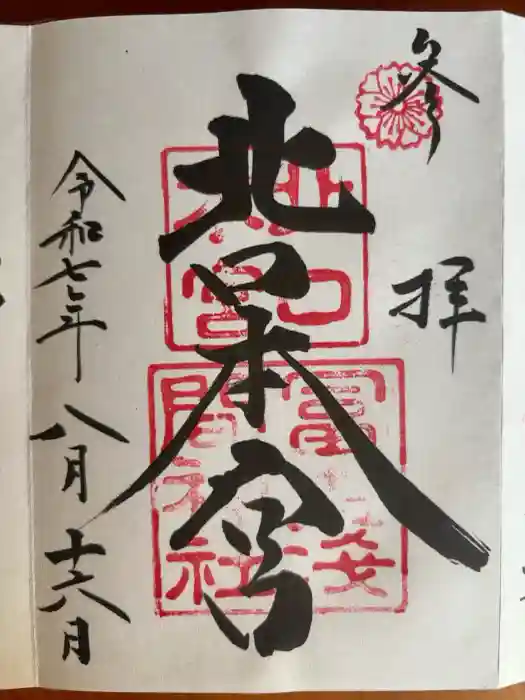 参拝
北口本宮
北口本宮
冨士浅間神社
令和七年八月十六日